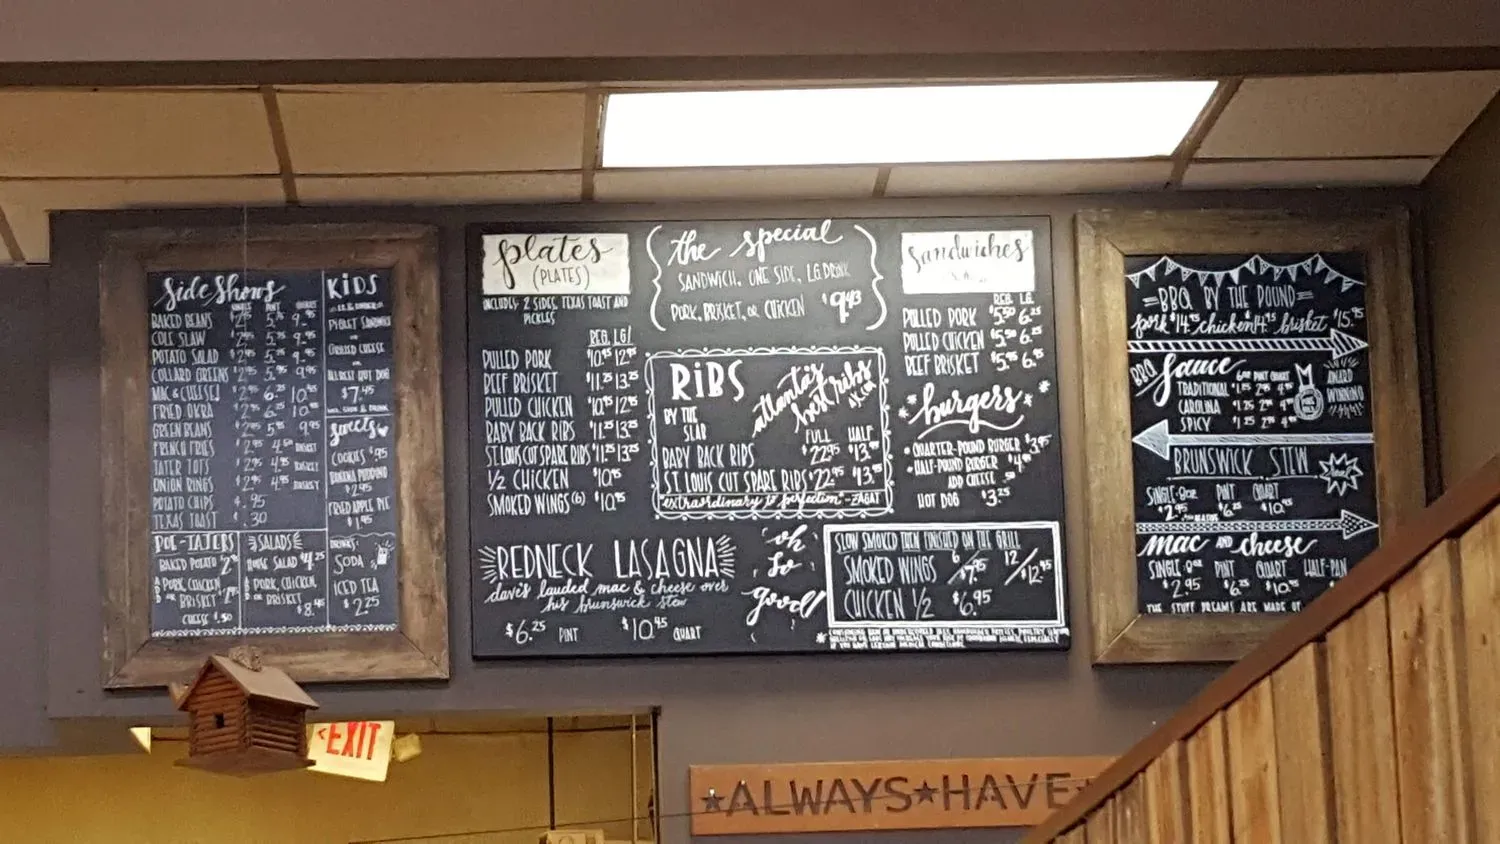 Side Shows
SINGLE PINT QUART
BAKED BEANS $2.95 5.75 9.95
COLE SLAW $2.95 5.75 9.95
POTATO SALAD $2.95 5.75 9.95
COLLARD GREENS $2.95 5.75 9.95
MAC & CHEESE $2.95 6.25 10.95
FRIED OKRA $2.95 6.25 10.95
GREEN BEANS $2.95 5.75 9.95
FRENCH FRIES $2.95 4.50 BASKET
TATER TOTS $2.95 4.95 BASKET
ONION RINGS $2.95 4.95 BASKET
POTATO CHIPS $.95
TEXAS TOAST $.30
POE-TATERS
BAKED POTATO
PORK, CHICKEN,
OR BRISKET
CHEESE $.50
SALADS
HOUSE SALAD $4.25
PORK, CHICKEN,
OR BRISKET
$8.95
KIDS
PIGLET SANDWICH
OR
GRILLED CHEESE
OR
ALLBEEF HOT DOG
$7.45
INCL. SIDE & DRINK
sweets
COOKIES $.95
BANANA PUDDING
$2.95
FRIED APPLE PIE
$1.95
DRINKS
SODA
ICED TEA
$2.25
plates
(PLATES)
INCLUDES: 2 SIDES, TEXAS TOAST AND
PICKLES
REG. LG.
PULLED PORK $10.95 12.95
BEEF BRISKET $11.25 13.25
PULLED CHICKEN $10.95 12.95
BABY BACK RIBS $11.25 13.25
ST. LOUIS CUT SPARE RIBS $11.25 13.25
1/2 CHICKEN $10.95
SMOKED WINGS (6) $10.95
the special
SANDWICH, ONE SIDE, LG. DRINK
PORK, BRISKET, OR CHICKEN $9.43
RIBS
BY THE
SLAB
atlanta's
best ribs
FULL HALF
BABY BACK RIBS $22.95 $13.95
ST LOUIS CUT SPARE RIBS $22.95 $13.95
"extraordinary to perfection" - ZAGAT
sandwiches
REG. LG.
PULLED PORK $5.50 6.25
PULLED CHICKEN $5.50 6.25
BEEF BRISKET $5.75 6.95
burgers
QUARTER-POUND BURGER $3.95
HALF-POUND BURGER $4.95
ADD CHEESE .50
HOT DOG $3.25
REDNECK LASAGNA
dave's lauded mac & cheese over
his brunswick stew
$6.25 PINT $10.45 QUART
oh
so
good!
SLOW SMOKED THEN FINISHED ON THE GRILL
SMOKED WINGS 6/$7.95 12/$12.95
CHICKEN 1/2 $6.95
BBQ BY THE POUND
pork $14.95 chicken $14.95 brisket $15.95
BBQ Sauce 6oz PINT QUART
TRADITIONAL
CAROLINA
SPICY
AWARD
WINNING
BRUNSWICK STEW
SINGLE-8oz PINT QUART
$2.95 $6.25 $10.95
mac AND cheese
SINGLE-8oz PINT QUART HALF-PAN
$2.95 $6.25 $10.95
THE STUFF DREAMS ARE MADE OF
EXIT
ALWAYS HAVE